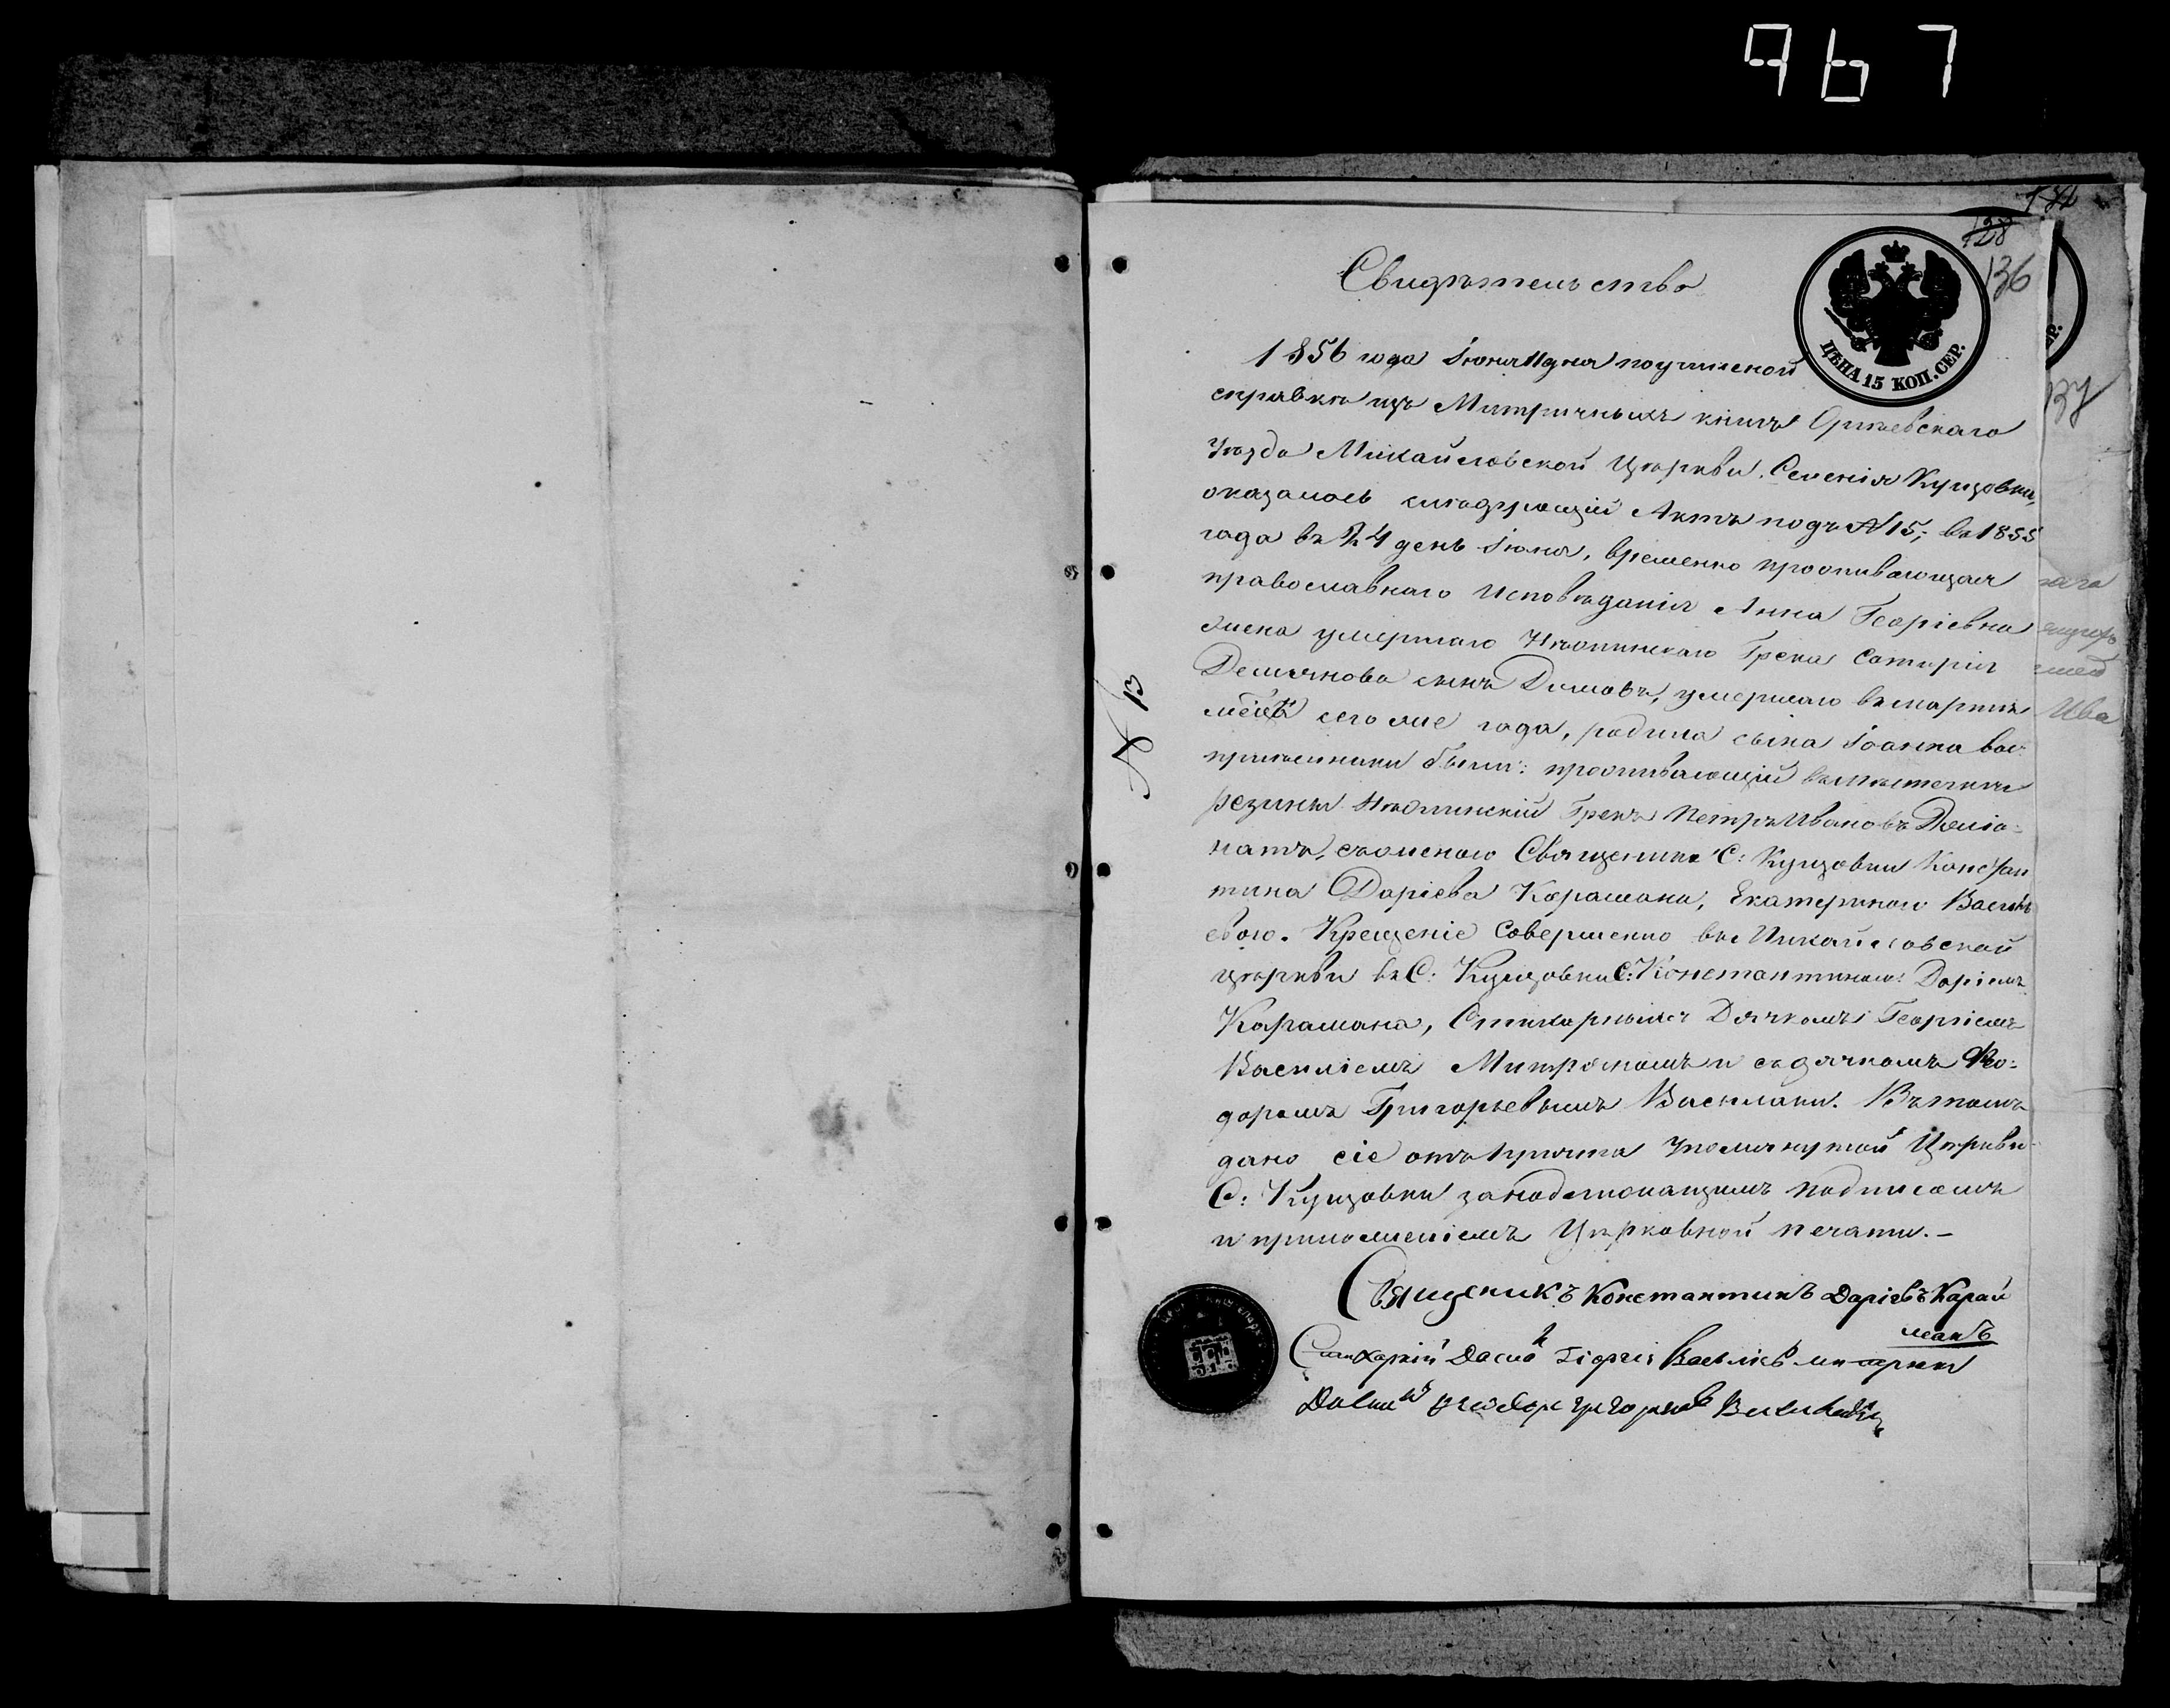 967
128
136
ЦѢНА 15 КОП. СЕР.
Свидѣтельство
1856 года Іюня 11 дня по учиненой
справкѣ изъ Митричныхъ книгъ Оргѣевскаго
Уѣзда Михайловской Цѣркви Селенія Куцовки,
оказалось слѣдующій Актъ подъ № 15; въ 1855
года въ 24 день Іюня, временно проживающая
православнаго Исповѣданія Анна Георгіевна
жена умершаго Нѣжинскаго Грека Сотирія
Демянова сынъ Димовъ, умершаго въ мартѣ
м. сего же года, родила сына Іоанна вос
пріѣмники были: проживающій въ мѣстечкѣ
Резины Нѣжинскій Грекъ Петръ Ивановъ
натъ, съ женою Священика С: Куцовки Констан
тина Даріева Карамана, Екатериною Василь
евою. Крещеніе Совершенно въ Михайловской
цѣркви въ С: Куцовки С: Константиномъ Даріемъ
Карамана, Стихарнымъ Дячкомъ Георгіемъ
Василіемъ и съ дячкомъ Ѳео-
доромъ Григорьевымъ Въ томъ
дано сіе отъ причта Упомянутой Цѣркви
С: Куцовки за надлежащимъ подписомъ
и приложеніемъ Цѣрковной печати. —
Священикъ Константинъ Даріевъ Карай
манъ
Стихарній Георгій
№ 13